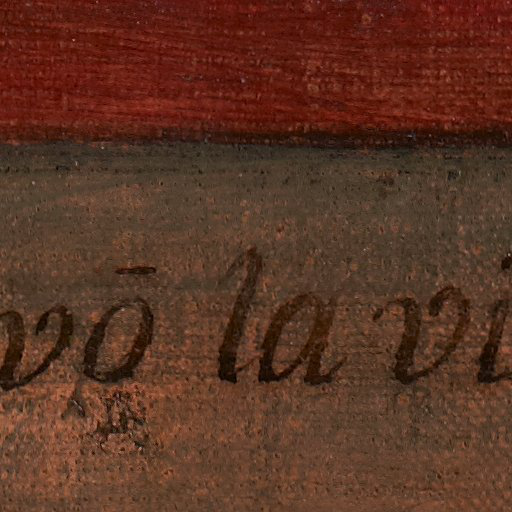 vō la vi